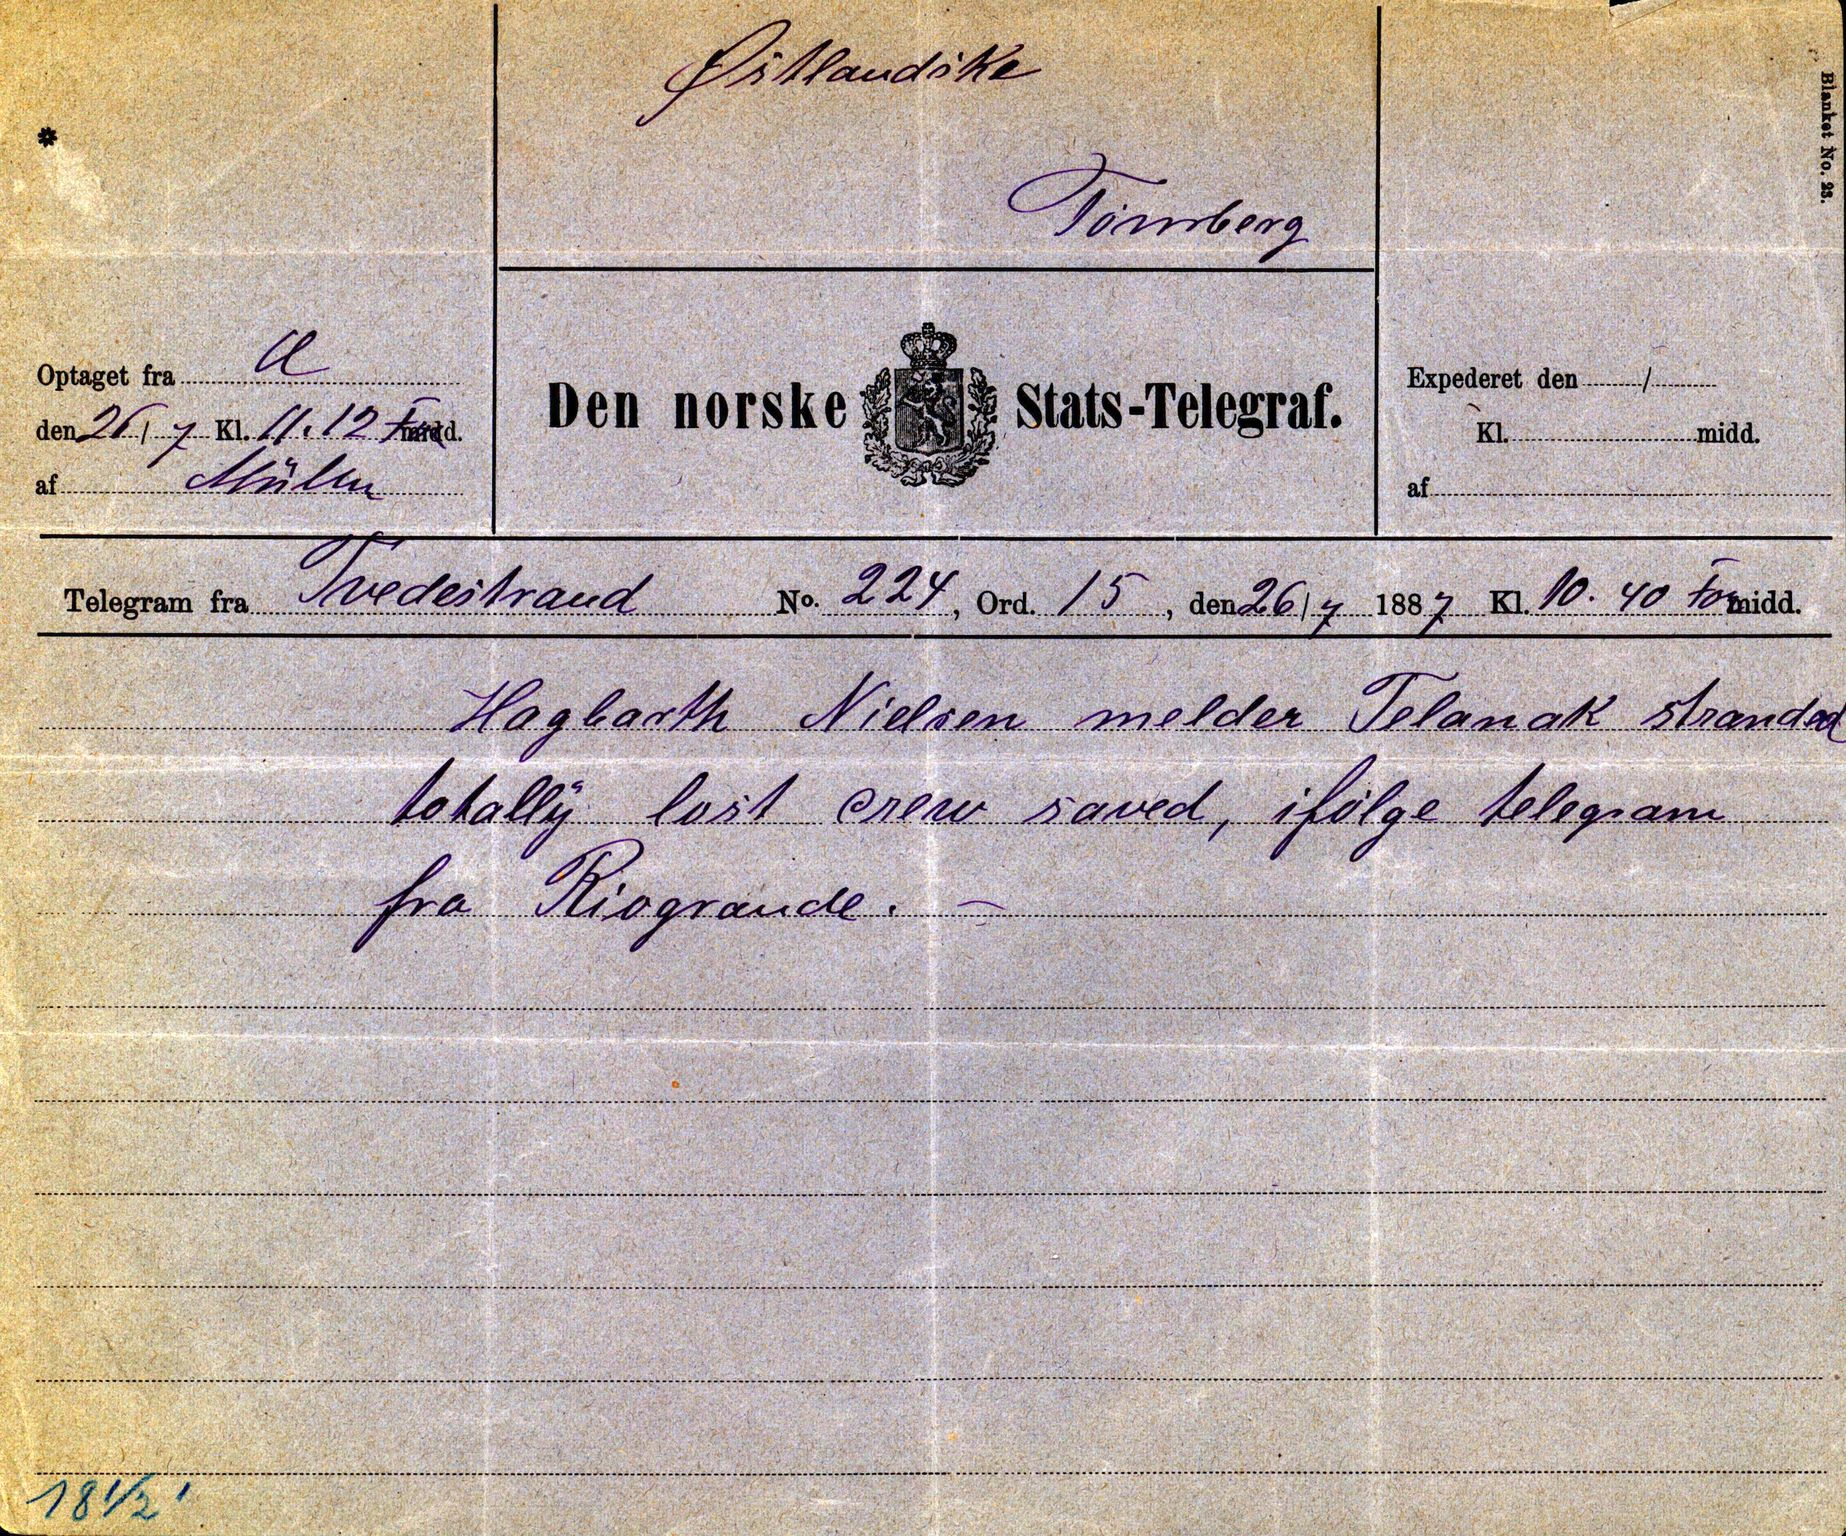 Østlandske
Tönsberg
Blanket No. 23.
*
Optaget fra a
den 26/7 Kl. 11.12 Formidd.
af Müller
Den norske Stats-Telegraf.
Expederet den /
Kl. midd.
af
Telegram fra Tvedestrand No. 224, Ord. 15, den 26/7 1887 Kl. 10.40 Formidd.
Hagbarth Nielsen melder Telanak stranded
totally lost crew saved, ifølge telegram
fra Riogrande. —
18 1/2